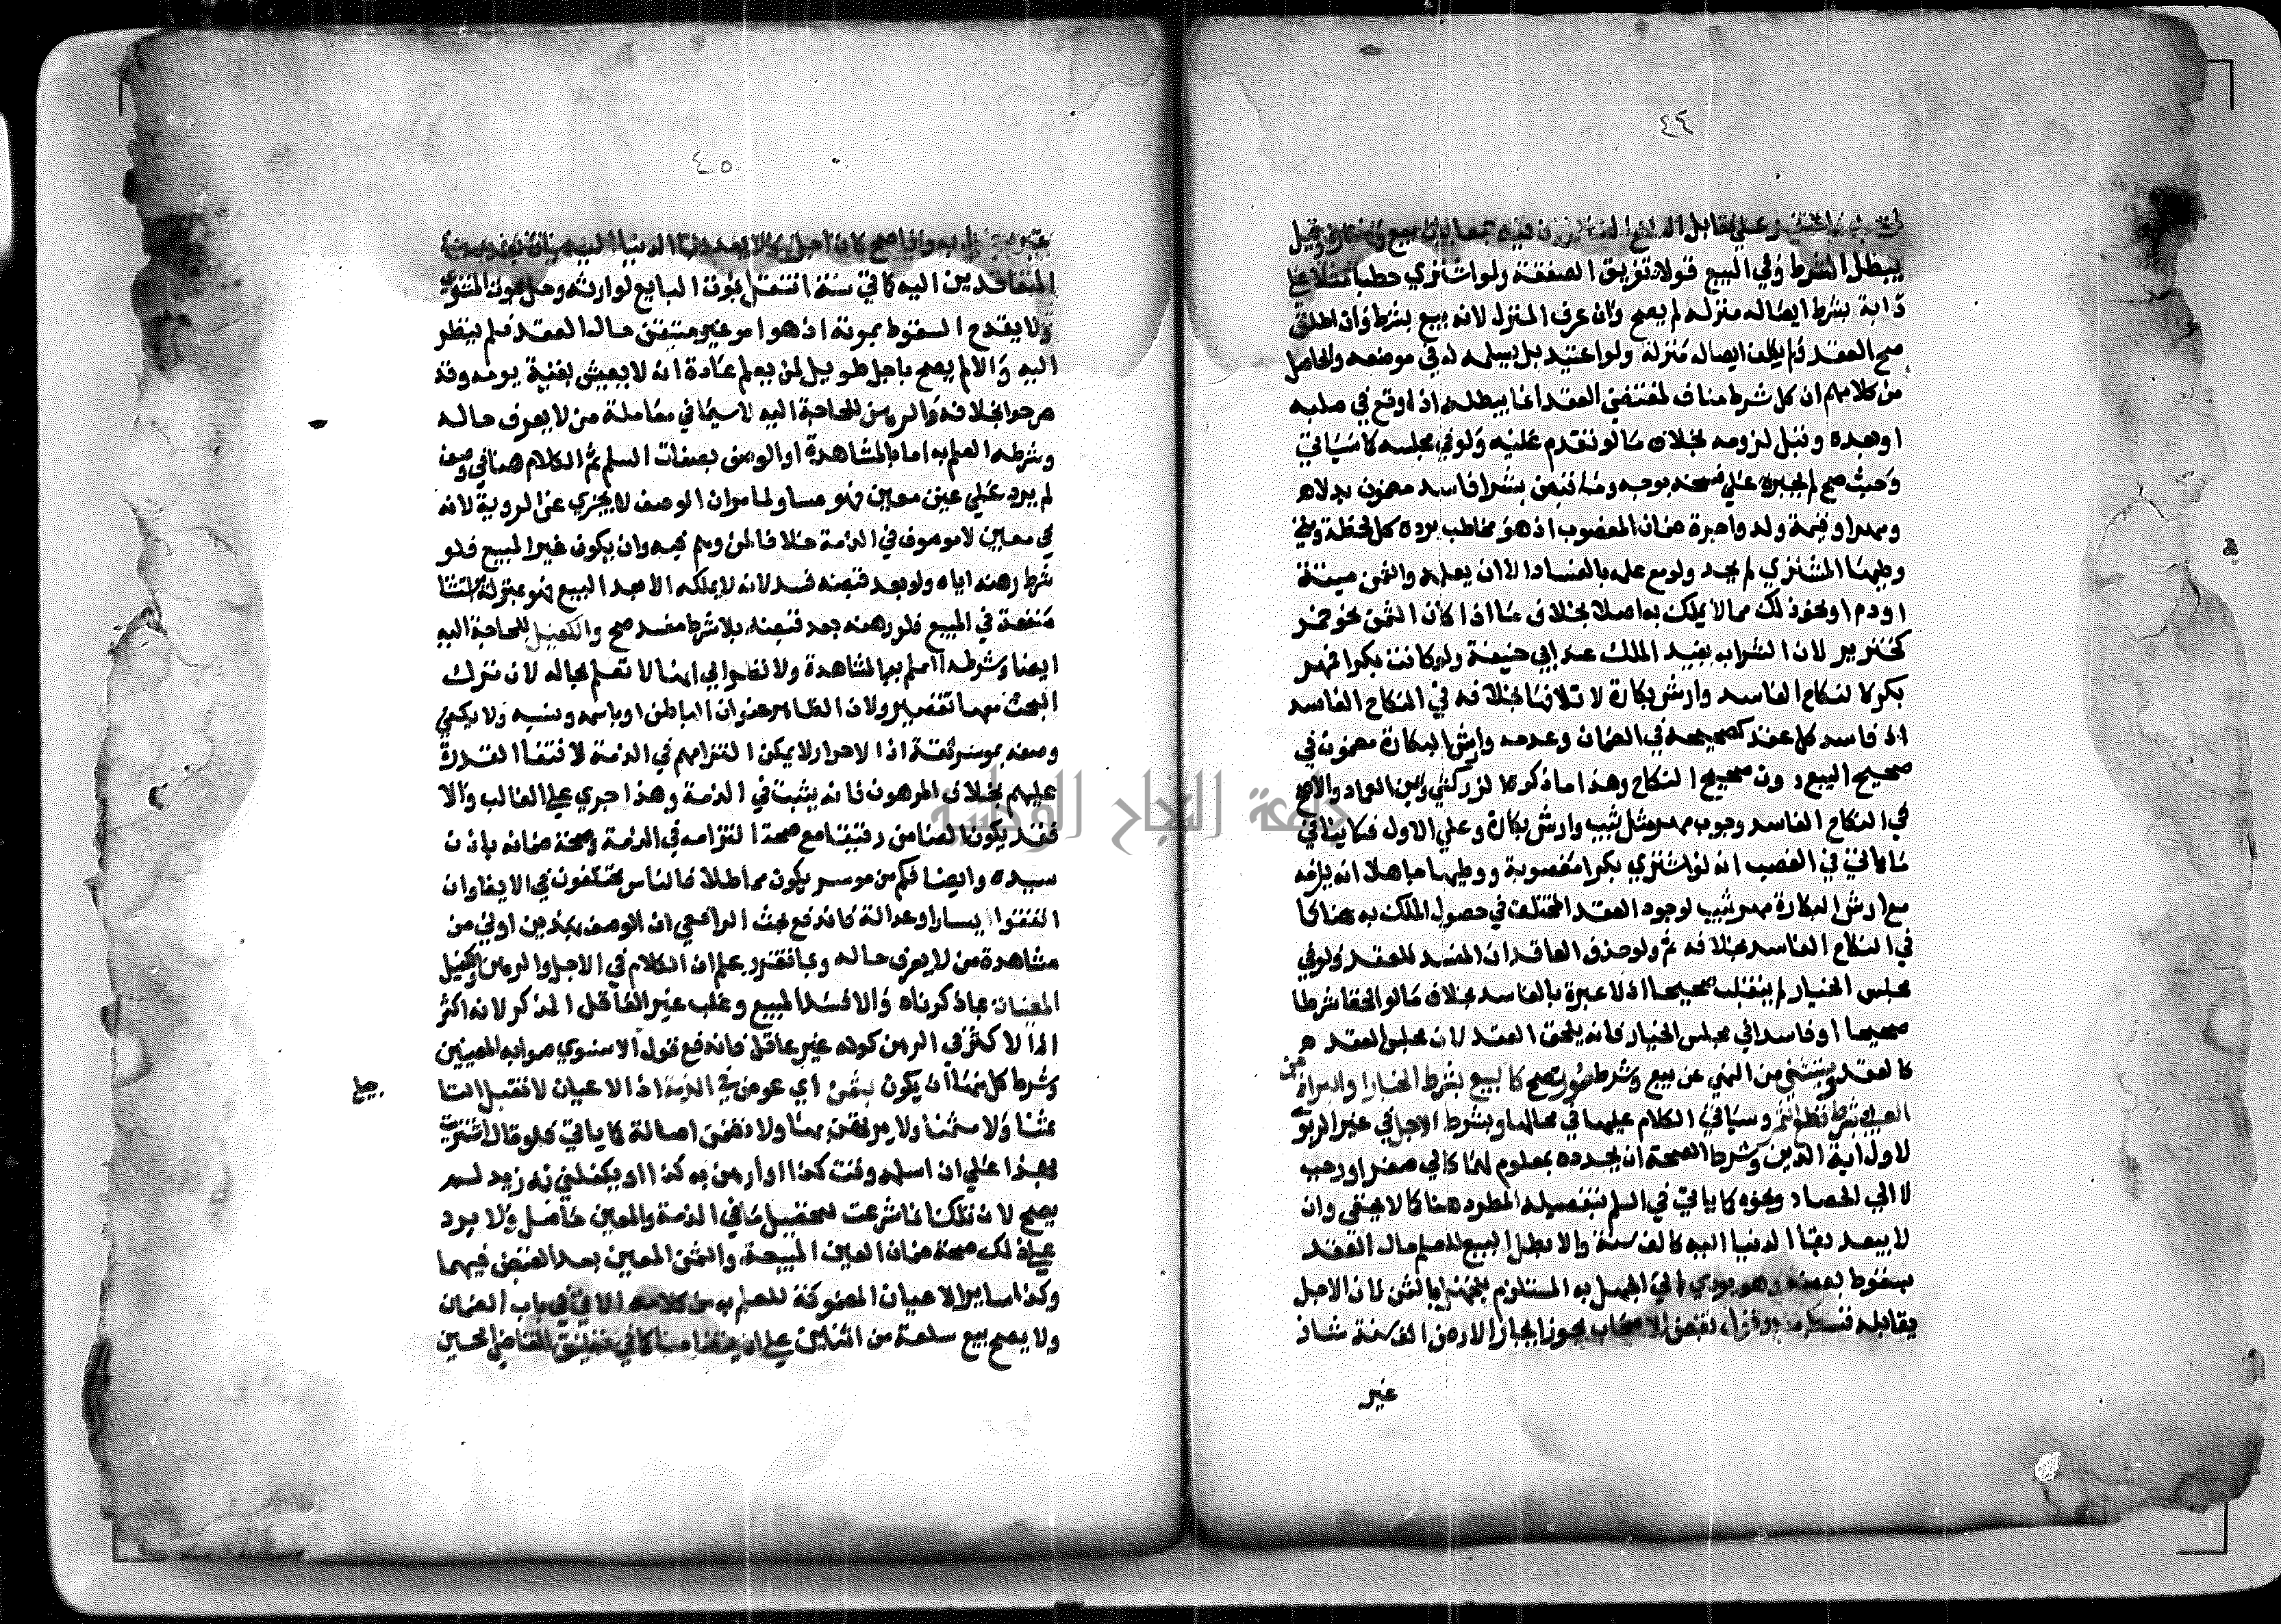 ٤٦
يبطل الشرط وفي البيع قولا تفريق الصفقة ولو اشترى حطبا مثلا على
دابة بشرط ايصاله منزله لم يصح وان عرف المنزل لانه بيع بشرط وان اطلق
صح العقد ولم يكلف ايصاله منزله ولو اعتيد بل يسلمه له في موضعه والحاصل
من كلامهم ان كل شرط مناف لمقتضى العقد انما يبطله اذا وقع في صلبه
او بعده وقبل لزومه بخلاف ما لو تقدم عليه ولو في مجلسه كما سياتي
وحيث صح لم يجبر على فسخه بوجه وما قبض بشراء فاسد مضمون بدلا
ومهرا وقيمة ولد واجرة ضمان المغصوب اذ هو مخاطب برده كل لحظة وفي
وطيها المشتري لم يحد ولو مع علمه بالفساد الا ان يعلمه والثمن ميتة
او دم او نحو ذلك مما لا يملك به اصلا بخلاف ما اذا كان الثمن نحو خمر
كخنزير لان الشراء به يفيد الملك عند ابي حنيفة ولو كانت بكرا فمهر
بكر كالنكاح الفاسد وارش بكارة لاتلافها بخلافه في النكاح الفاسد
اذ فاسد كل عقد كصحيحه في الضمان وعدمه وارش البكارة مضمون في
صحيح البيع دون صحيح النكاح وهذا ما ذكره الزركشي وابن العماد والاصح
في النكاح الفاسد وجوب مهر مثل ثيب وارش بكارة وعلى الاول فكما ينافي
ما ياتي في الغصب انه لو اشترى بكرا مغصوبة ووطيها جاهلا انه يلزمه
مع ارش البكارة مهر ثيب لوجود العقد المختلف في حصول الملك به هنا كما
في النكاح الفاسد بخلافه ثم ولو حذف العاقدان المفسد للعقد ولو في
مجلس الخيار لم ينقلب صحيحا اذ لا عبرة بالفاسد بخلاف ما لو الحقا شرطا
صحيحا او فاسدا في مجلس الخيار فانه يلحق العقد لان مجلس العقد
كالعقد ويستثنى من النهي عن بيع وشرط صور تصح كالبيع بشرط الخيار او البراءة من
العيب بشرط قطع الثمر وسياتي الكلام عليها في محالها وبشرط الاجل في غير الربوي
لاول اية الدين وشرط الصحة ان يحدده بمعلوم لهما كالى صفر او رجب
لا الى الحصاد ونحوه كما ياتي في السلم بتفصيله المطرد هنا كما لا يخفى وان
لا يبعد بقاء الدنيا اليه كالف سنة والا بطل البيع للعلم حال العقد
بسقوط بعضه وهو يودي الى الجهل به المستلزم للجهل بالثمن لان الاجل
يقابله قسط منه وقول بعض الاصحاب يجوز ايجار الارض الف سنة شاذ
غير
٤٥
المتعاقدين اليه كماتي سنة انتقل بموت البايع لوارثه وحل بموت المشتري
ولا يقدح السقوط بموته اذ هو امر غير متيقن حال العقد فلم ينظر
اليه والا لم يصح باجل طويل لمن يعلم عادة انه لا يعيش بقية يومه وقد
صرحوا بخلافه والرهن للحاجة اليه لا سيما في معاملة من لا يعرف حاله
وشرطه العلم به اما بالمشاهدة او الوصف بصفات السلم ثم الكلام هنا في وصف
لم يرد على عين معين فهو مساو لما مر ان الوصف لا يجزي عن الروية لانه
في معين لا موصوف في الذمة خلافا لمن وهم فيه وان يكون غير المبيع فلو
شرط رهنه اياه ولو بعد قبضه فسد لانه لا يملكه الا بعد البيع فهو بمنزلة استثنا
منفعة في المبيع فلو رهنه بعد قبضه بلا شرط مفسد صح والكفيل للحاجة اليه
ايضا وشرطه العلم به بالمشاهدة ولا نظر الى انها لا تعلم بحاله لان ترك
البحث معها تقصير ولان الظاهر عنوان الباطن او باسمه ونسبه ولا يكفي
وصفه بموسر ثقة اذ الاحرار لا يمكن التزامهم في الذمة لانتفا القدرة
عليهم بخلاف المرهون فانه يثبت في الذمة وهذا جري على الغالب والا
فقد يكون الضامن رقيقا مع صحة التزامه في الذمة وصحة ضمانه باذن
سيده وايضا فكم من موسر يكون مماطلا فالناس مختلفون في الايفا وان
اتفقوا يسارا وعدالة فاندفع بحث الرافعي ان الوصف بهذين اولى من
مشاهدة من لا يعرف حاله وبما تقرر يعلم ان الكلام في الاجل والرهن والكفيل
المعينات بما ذكرناه والا فسد البيع وغلب غير العاقل المذكر لانه اكثر
اذ الاكثر في الرهن كونه غير عاقل فاندفع قول الاسنوي صوابه المعينين
وشرط كل منها ان يكون بثمن اي عوض في الذمة اذ الاعيان لا تقبل التا
جيل
ثمنا ولا مثمنا ولا يرتهن بها ولا تضمن اصالة كما ياتي فلو قال اشتريت
بهذا على ان اسلمه وقت كذا او ارهن به كذا او يكفلني به زيد لم
يصح لان تلك انما شرعت لتحصيل ما في الذمة والمعين حاصل ولا يرد
على ذلك صحة ضمان العين المبيعة والثمن المعين بعد القبض فيهما
وكذا ساير الاعيان المضمونة للعلم به من كلامه الاتي في باب الضمان
ولا يصح بيع سلعة من اثنين على ان يتضامنا كما في تعليق القاضي الحسين